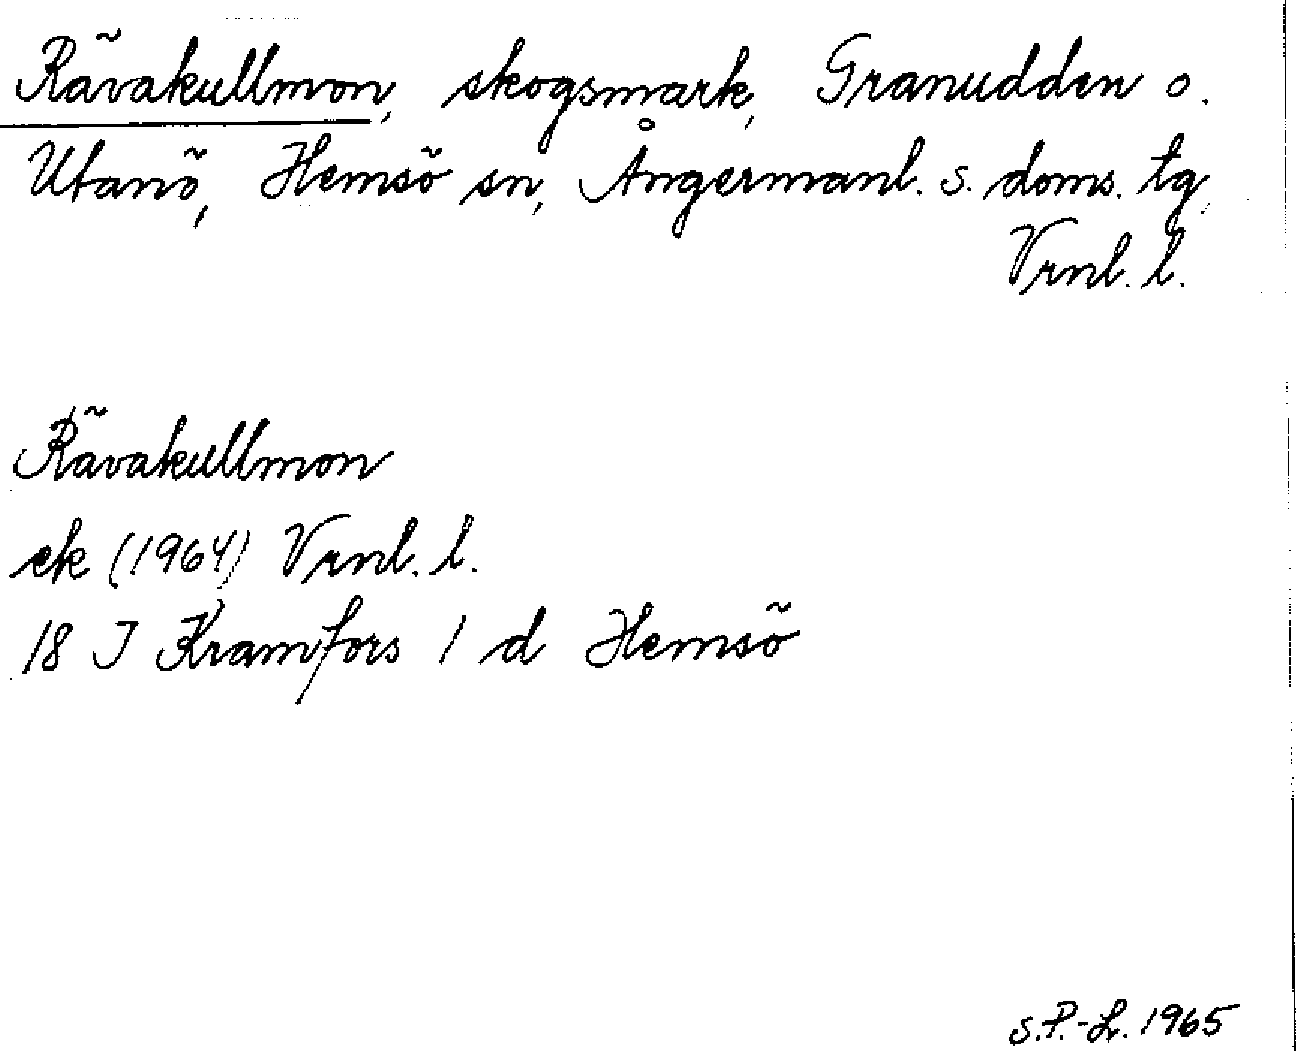 Rävakullmon, skogsmark, Granudden o.
Utanö, Hemsö sn, Ångermanl. s. doms. tg,
Vrnl. l.
Rävakullmon
ek (1964) Vrnl. l.
18 J Kramfors 1 d Hemsö
S.P.-L. 1965